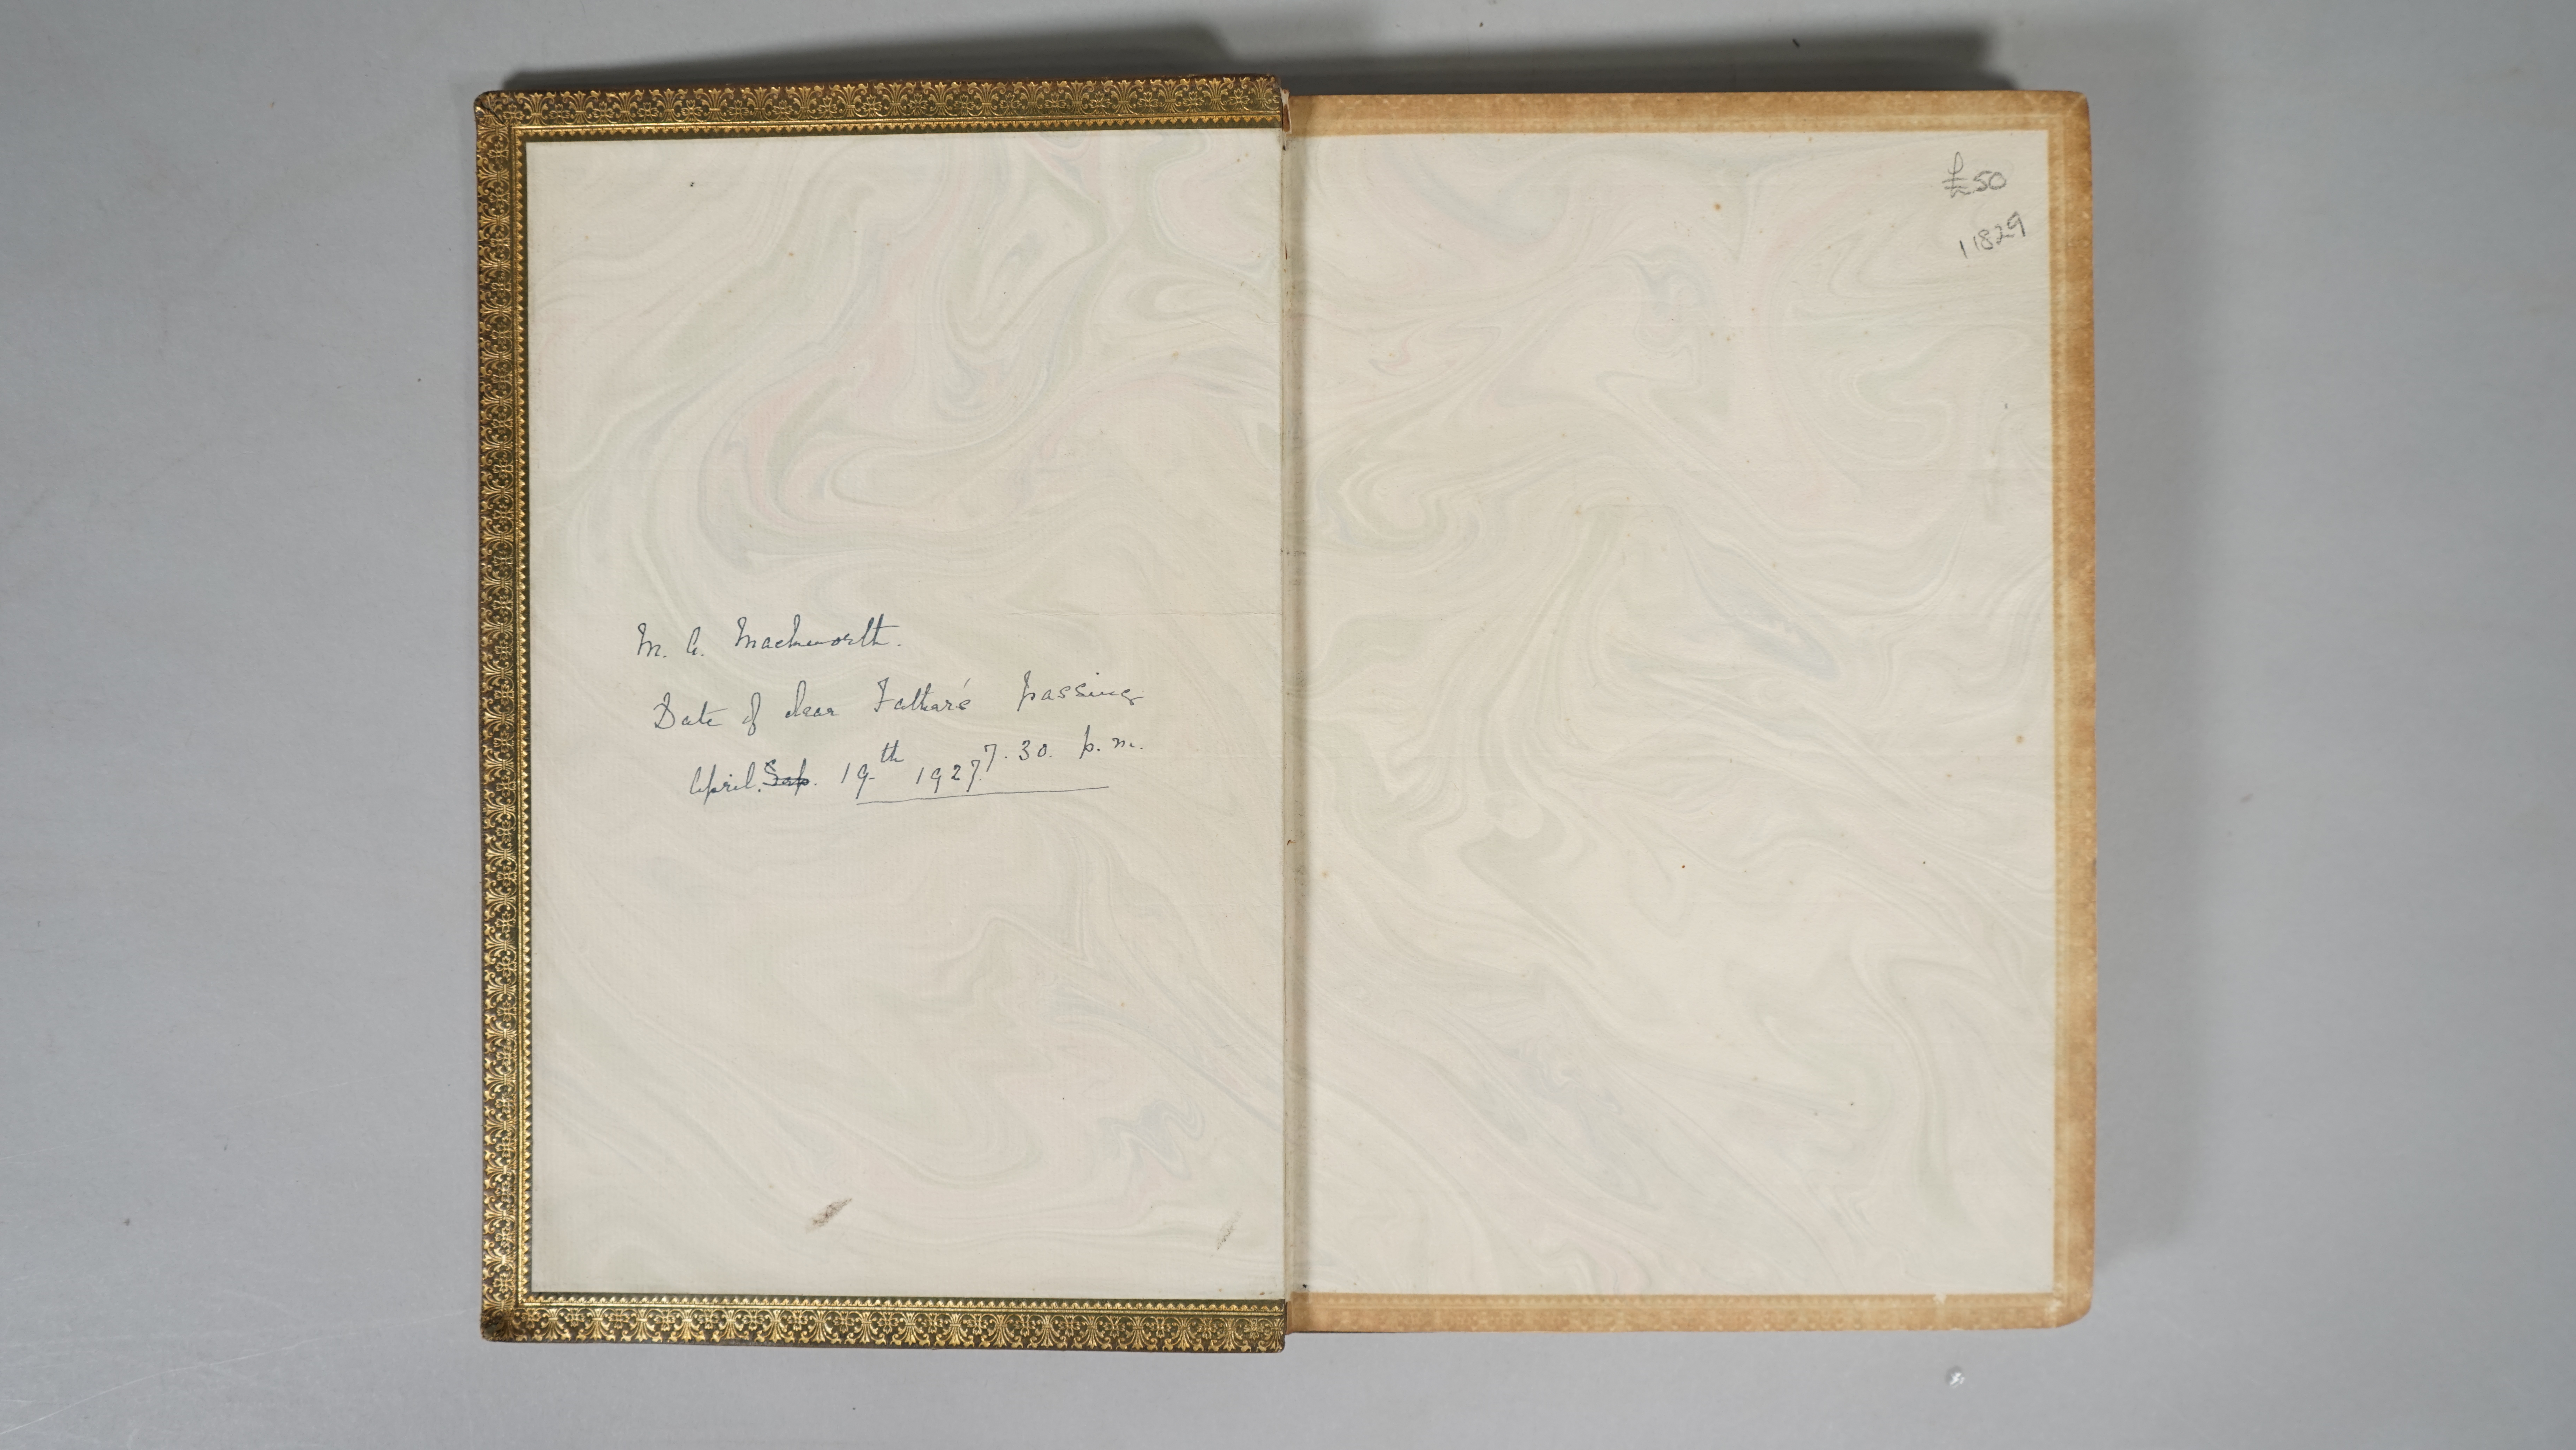 M. A. Mackworth.
Date of dear Father's passing
April. Sep. 19th 1927 7.30. p.m.
£50
11829